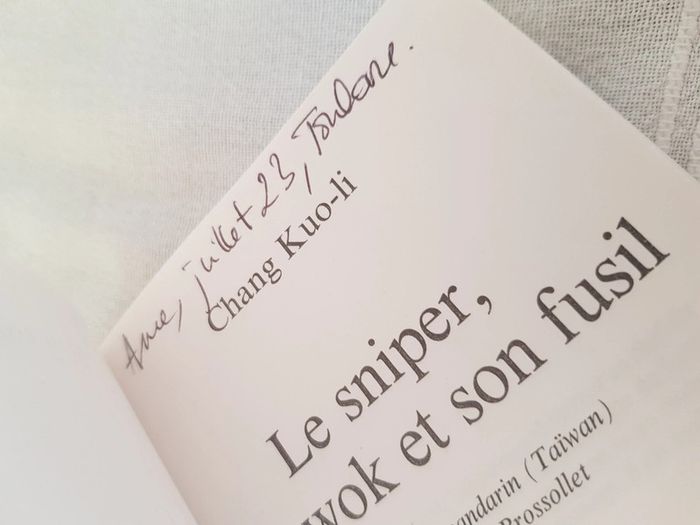 Anne, juillet 23, Toulouse.
Chang Kuo-li
Le sniper,
wok et son fusil
mandarin (Taïwan)
Prossollet